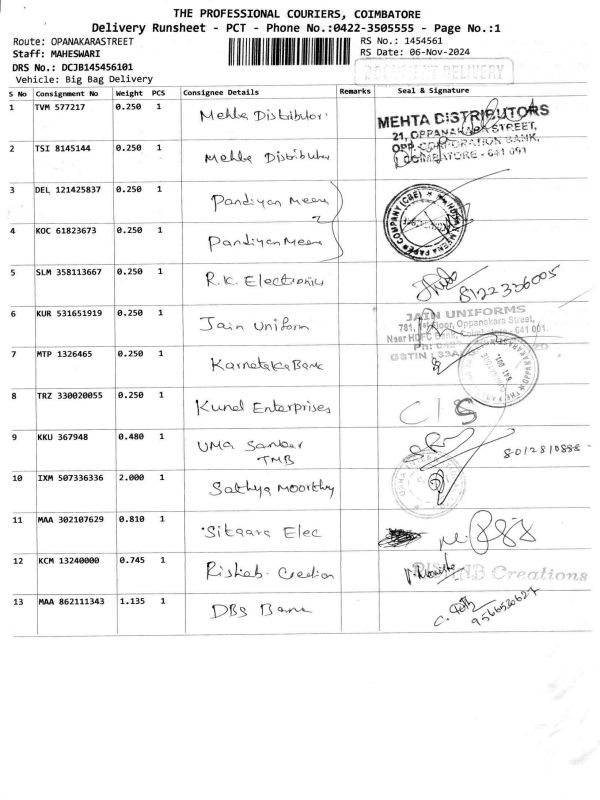 THE PROFESSIONAL COURIERS, COIMBATORE
Delivery Runsheet - PCT - Phone No.:0422-3505555 - Page No.:1
Route: OPANAKARASTREET RS No.: 1454561
Staff: MAHESWARI RS Date: 06-Nov-2024
DRS No.: DCJB145456101 DOCUMENT DELIVERY
Vehicle: Big Bag Delivery
S No Consignment No Weight PCS Consignee Details Remarks Seal & Signature
1 TVM 577217 0.250 1 Mehta Distributor
MEHTA DISTRIBUTORS
21, OPPANAKARA STREET,
OPP. CORPORATION BANK,
COIMBATORE - 641 001
2 TSI 8145144 0.250 1 Mehta Distributor
3 DEL 121425837 0.250 1 Pandiyan Meena
4 KOC 61823673 0.250 1 Pandiyan Meena
5 SLM 358113667 0.250 1 R.K. Electronics 8122336005
6 KUR 531651919 0.250 1 Jain Uniform
JAIN UNIFORMS
781, 1st Floor, Oppanakara Street,
Near HDFC Bank, Coimbatore - 641 001.
7 MTP 1326465 0.250 1 Karnataka Bank
8 TRZ 330020055 0.250 1 Kunal Enterprises C/S
9 KKU 367948 0.480 1 UMA Sankar 8012810888
TMB
10 IXM 507336336 2.000 1 Sathya Moorthy
11 MAA 302107629 0.810 1 Sitaara Elec
12 KCM 13240000 0.745 1 Rishab Creation Creations
13 MAA 862111343 1.135 1 DBS Bank 9566520627